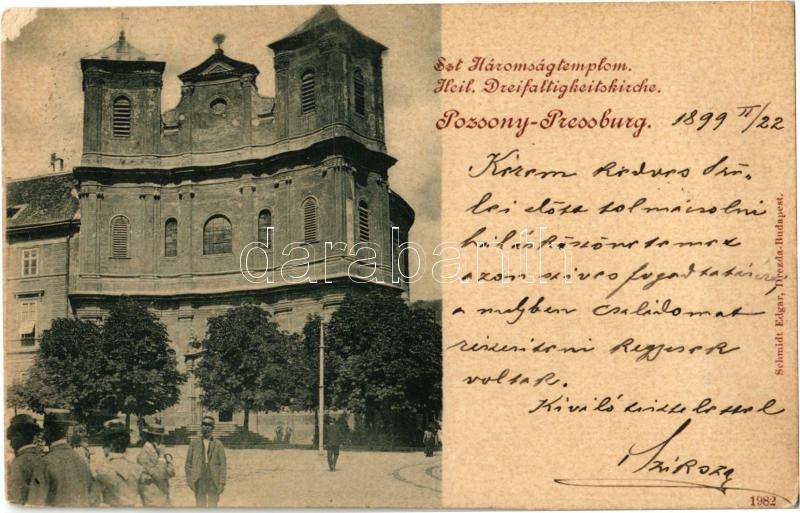 Szt Háromságtemplom.
Heil. Dreifaltigkeitskirche.
Pozsony-Pressburg. 1899 II/22
Kérem kedves Szü-
lei előtt tolmácsolni
hálásköszönetemet
azon szives fogadtatásért,
a melyben családomat
részesiteni kegyesek
voltak.
Kiváló tisztelettel
Szikszay
Schmidt Edgar, Drezda-Budapest.
1982
darabanth.com